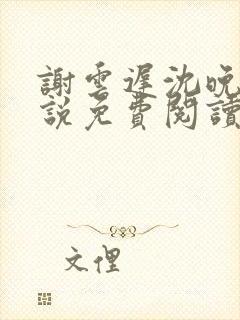 謝雲遲沈晚
說免費閱讀
文俚